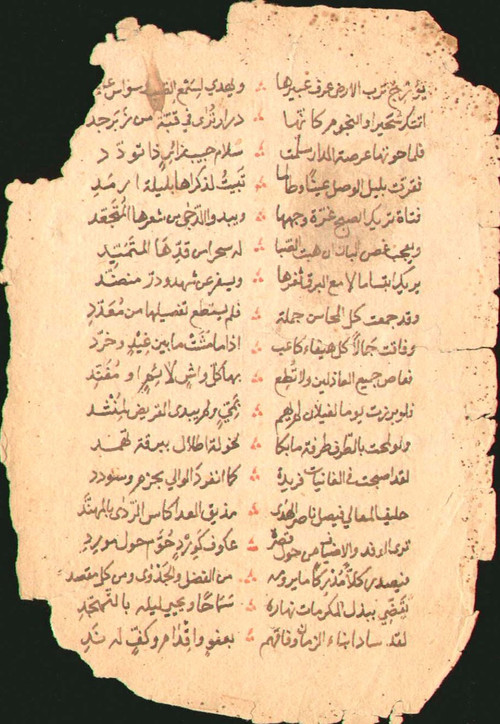 يؤرج ترب الارض عرف عبيرها ويهدي لسمع
اتتك سحيرا والنجوم كانها درار ترى في قبة من زبرجد
سلام حبيب زائر ذا تودد
فقرت بليل الوصل عينا وطالما تبيت لذكراها بليلة ارمد
فتاة تريك الصبح غرة وجهها ويبدو الدجى من شعرها المتجعد
غصن البان ان هبت الصبا من قدها
يريك ابتساما لامع البرق ثغرها ويسفر عن شهد ودر منضد
وقد جمعت كل المحاسن جملة فلم يستطع تفصيلها من معدد
وفاقت جمالا كل هيفاء كاعب اذا ما مشت ما بين غيد وخرد
فعاص جميع العاذلين ولا تطع بها كل واش لائم او مفند
فلو برزت يوما لغيلان لم يهم بمي ولم يبدى القريض لمنشد
ولو لمحت بالطرف طرفة ما بكا لخولة اطلال ببرقة ثهمد
لقد اصبحت في الغانيات فريدة كما انفرد الوالي بحزم وسودد
حليف المعالي فيصل ناصر الهدى مذيق العدا كاس الردى بالمهند
ترى الوفد حول قصره عكوف كورد حوم حول مورد
فيصدر كلا مدركا ما يرومه من الفضل والجدوى ومن كل مقصد
تقضي ببذل المكرمات نهاره سماحا ويحيي ليله بالتهجد
لقد ساد ابناء الزمان وفاقهم بعفو واقدام وكف له ند